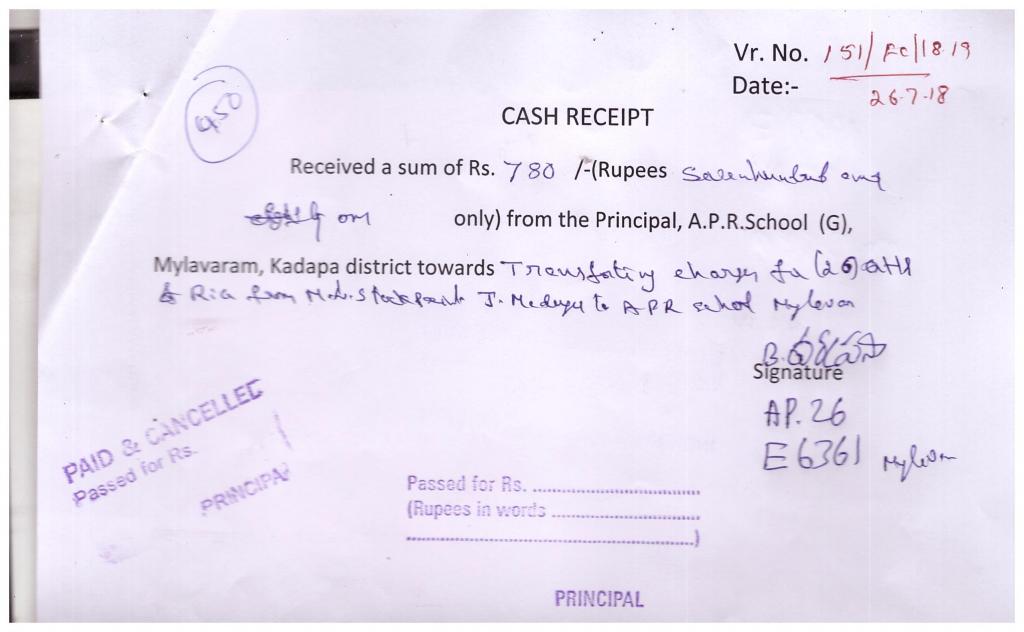 Vr. No. 151/FC/18.19
Date:- 26.7.18
450
CASH RECEIPT
Received a sum of Rs. 780 /-(Rupees Sevenhundred and
only) from the Principal, A.P.R.School (G),
Mylavaram, Kadapa district towards Transfating charges for (26) Qtls
of Rice from M.L.S Stock point J. Madugu to APR school Mylavaram
B.
Signature
AP. 26
E 6361 Mylavaram
PAID & CANCELLED
Passed for Rs.
PRINCIPAL
Passed for Rs. ..............................
(Rupees in words ..........................
..................................................)
PRINCIPAL